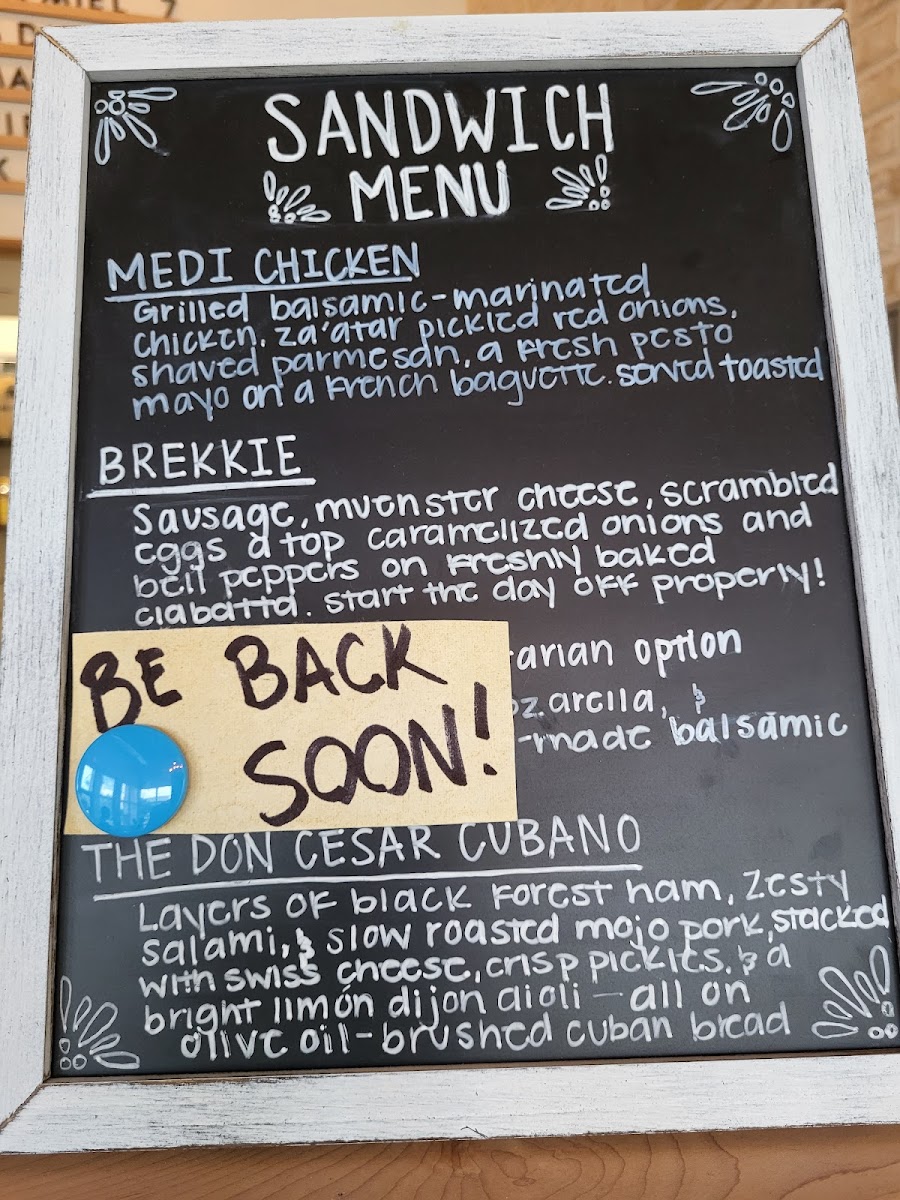 SANDWICH
MENU
MEDI CHICKEN
Grilled balsamic-marinated
chicken, za'atar pickled red onions,
shaved parmesan, a fresh pesto
mayo on a French baguette. served toasted
BREKKIE
Sausage, muenster cheese, scrambled
eggs atop caramelized onions and
bell peppers on freshly baked
ciabatta. start the day off properly!
arian option
BE BACK
ozarella, &
-made balsamic
SOON!
THE DON CESAR CUBANO
Layers of black forest ham, zesty
salami, & slow roasted mojo pork, stacked
with swiss cheese, crisp pickles, & a
bright limón dijon aioli — all on
olive oil-brushed cuban bread